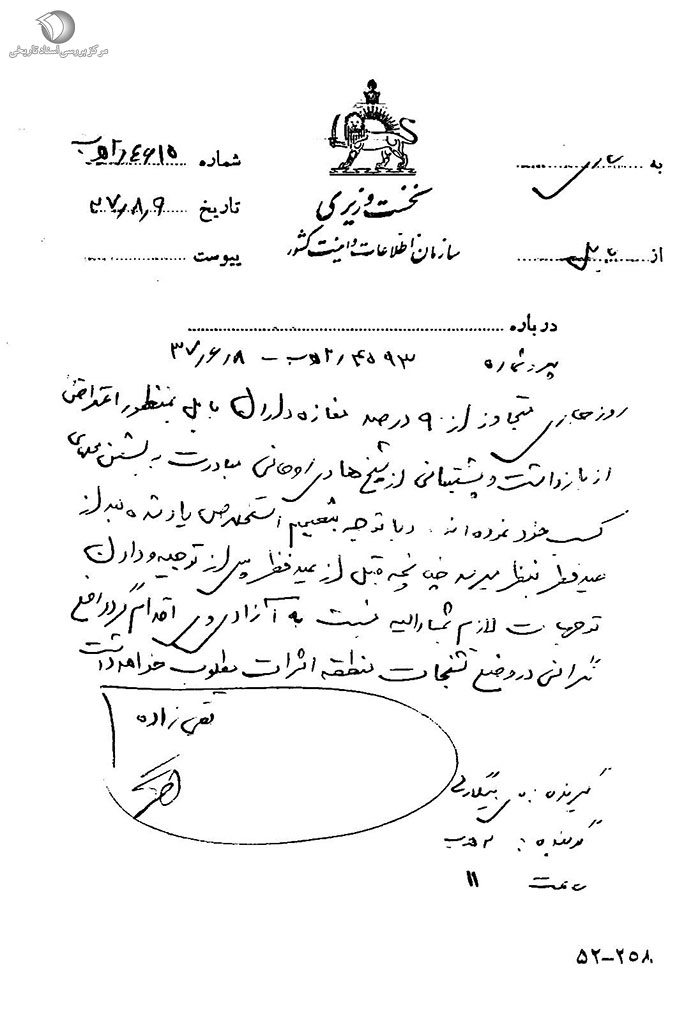 مرکز بررسی اسناد تاریخی
به
از بابل
نخست وزیری
سازمان اطلاعات و امنیت کشور
شماره ۴۶۱۵
تاریخ ۳۷/۸/۹
پیوست
درباره
پیرو شماره ۴۵۹۳/۲ه‍ب - ۳۷/۶/۸
روز جاری متجاوز از ۹۰ درصد مغازه داران بابل بمنظور اعتراض
از بازداشت و پشتیبانی از شیخ هادی روحانی مبادرت به بستن محلهای
کسب خود نموده اند. و با توجه بتصمیم استخلاص یاد شده بعد از
عید فطر بنظر میرسد چنانچه قبل از عید فطر پس از توجیه و دادن
توجهات لازم بمشارالیه نسبت به آزادی وی اقدام گردد رفع
نگرانی در وضع تشنجات منطقه اثرات مطلوب خواهد داشت
تقی زاده
گیرنده:
گوینده:
ساعت ۱۱
۵۲-۲۵۸